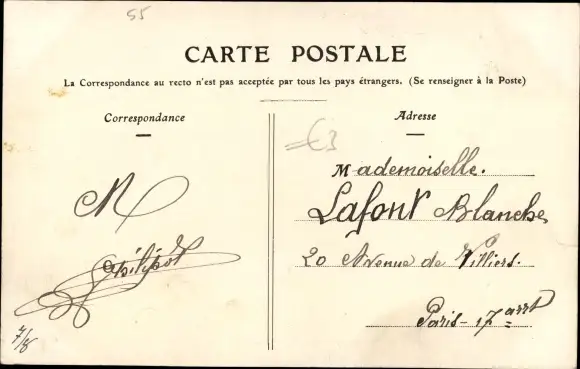 55
CARTE POSTALE
La Correspondance au recto n'est pas acceptée par tous les pays étrangers. (Se renseigner à la Poste)
Correspondance
M
Philipot
7/8
Adresse
€3
Mademoiselle.
Lafont Blanche
20 Avenue de Villiers.
Paris - 17 arrt